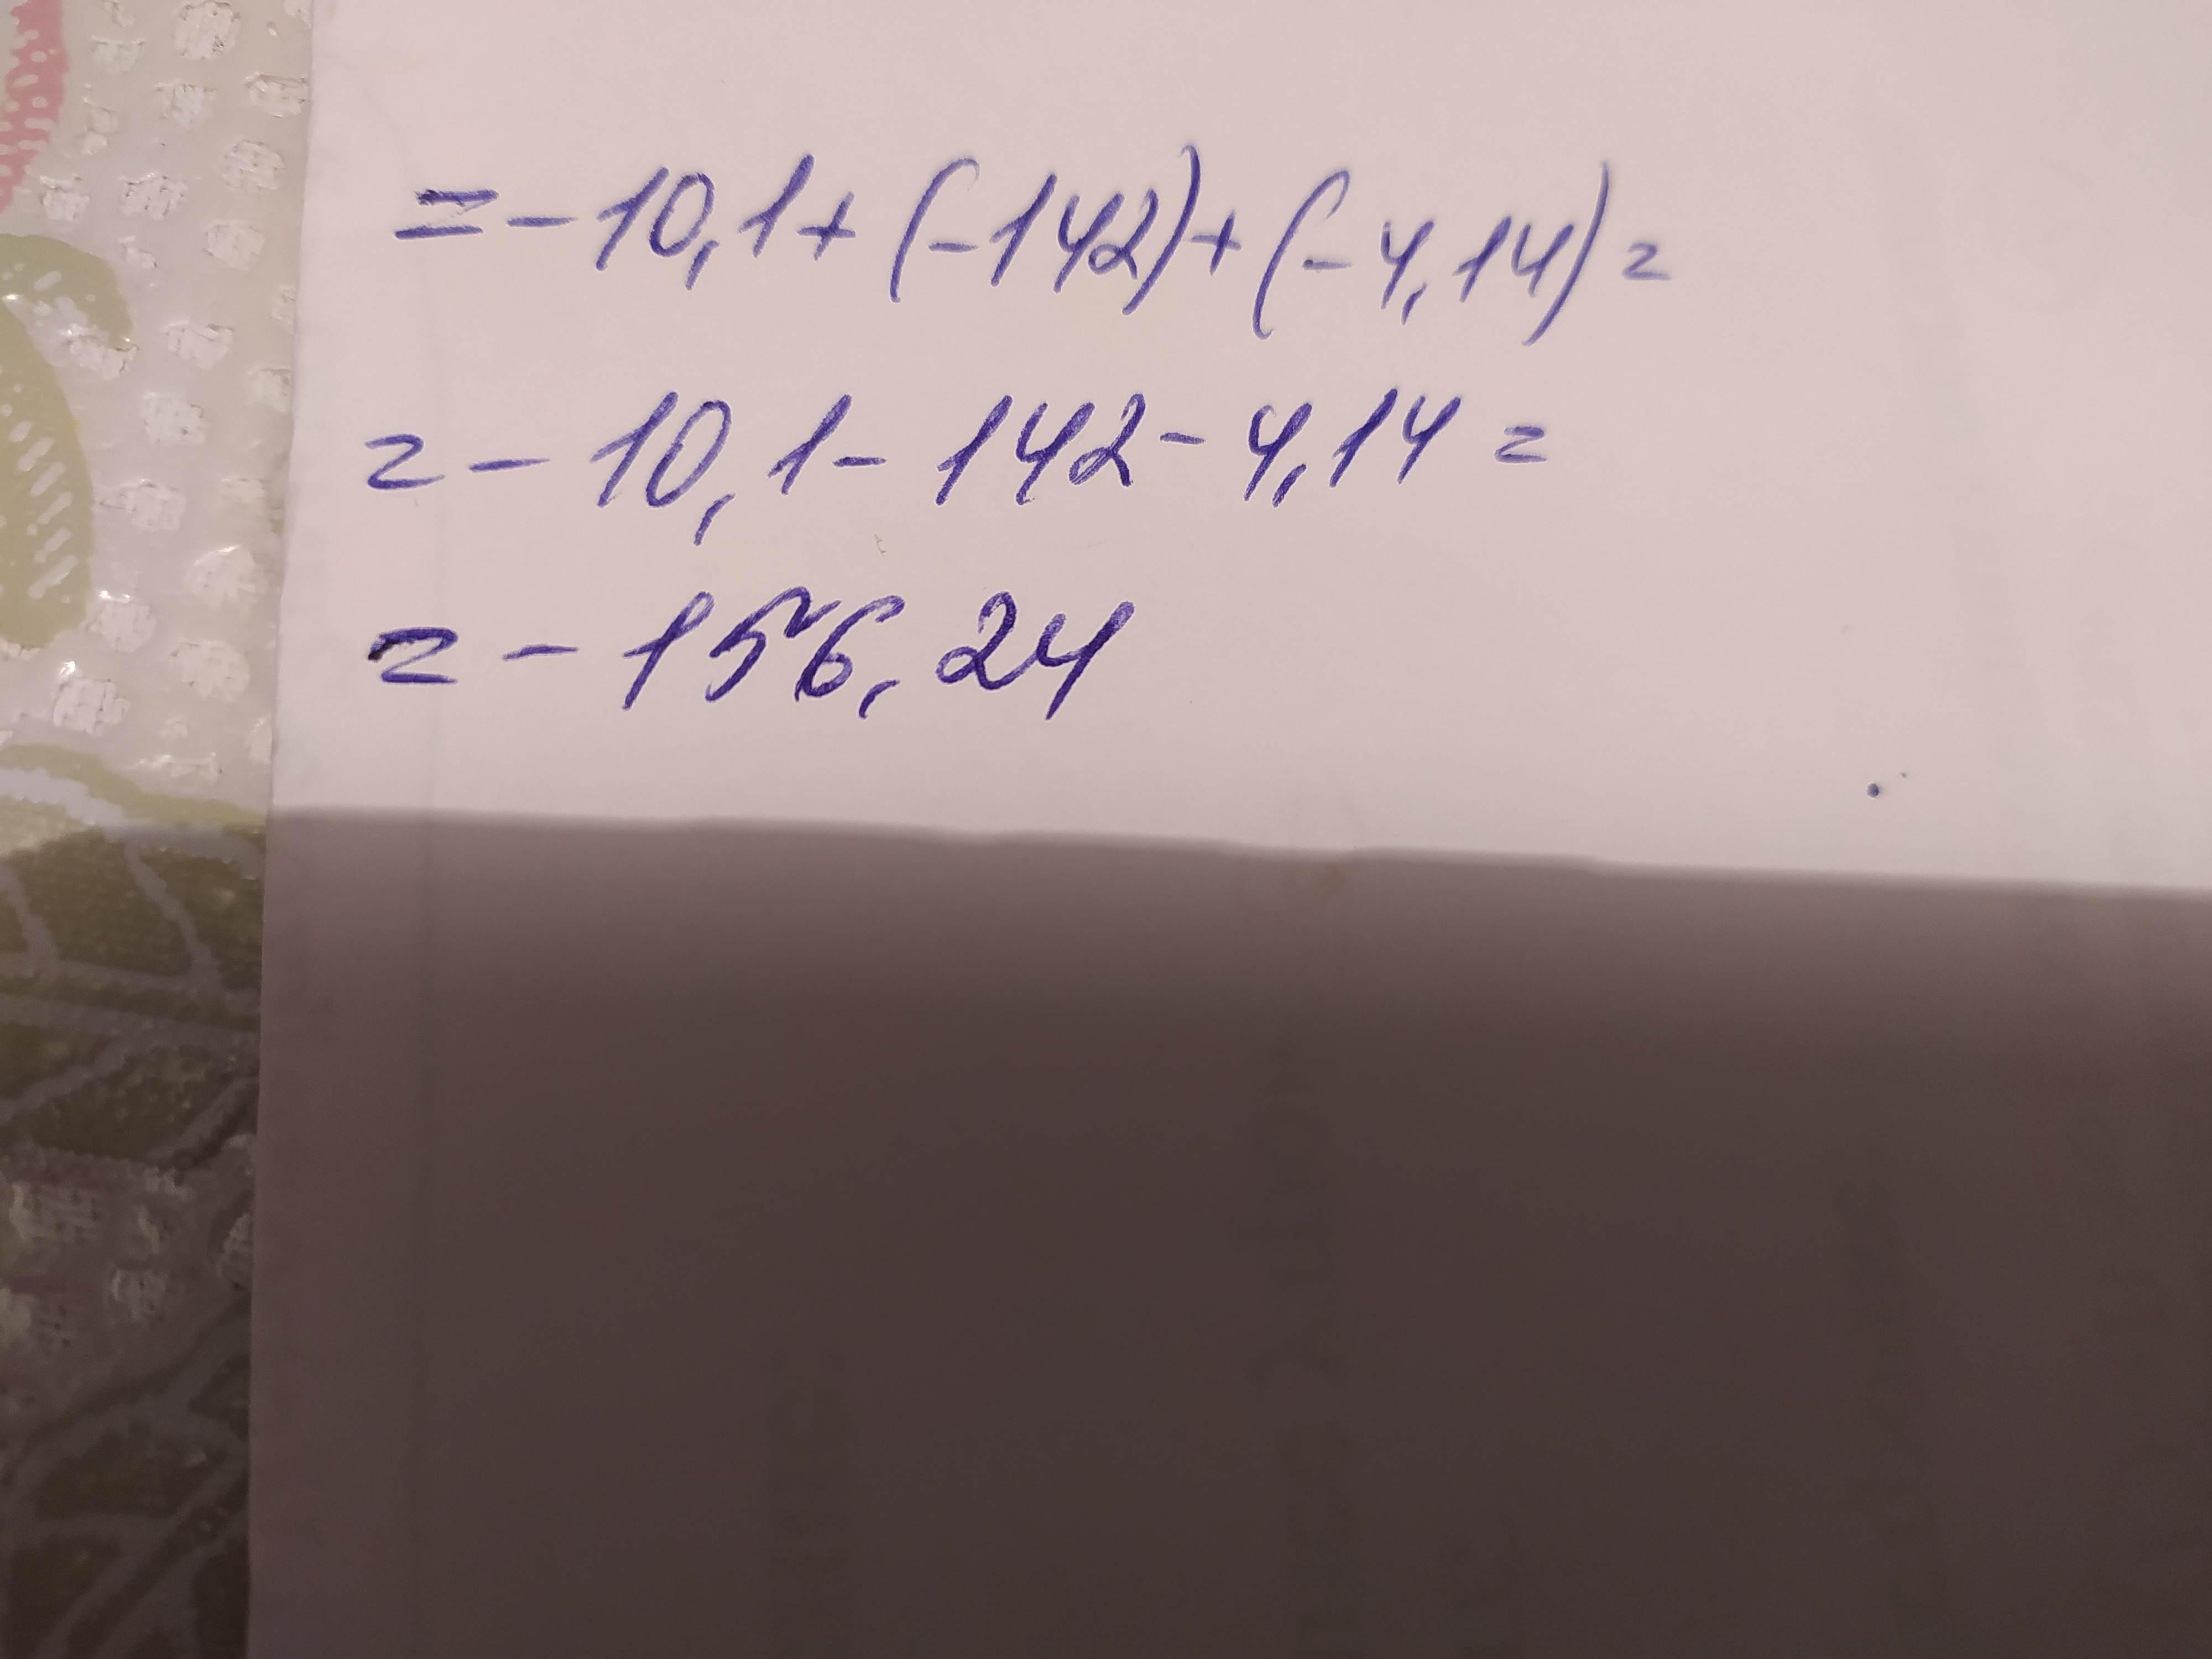 = - 10,1 + (-142) + (-4,14) =
= - 10,1 - 142 - 4,14 =
= - 156,24